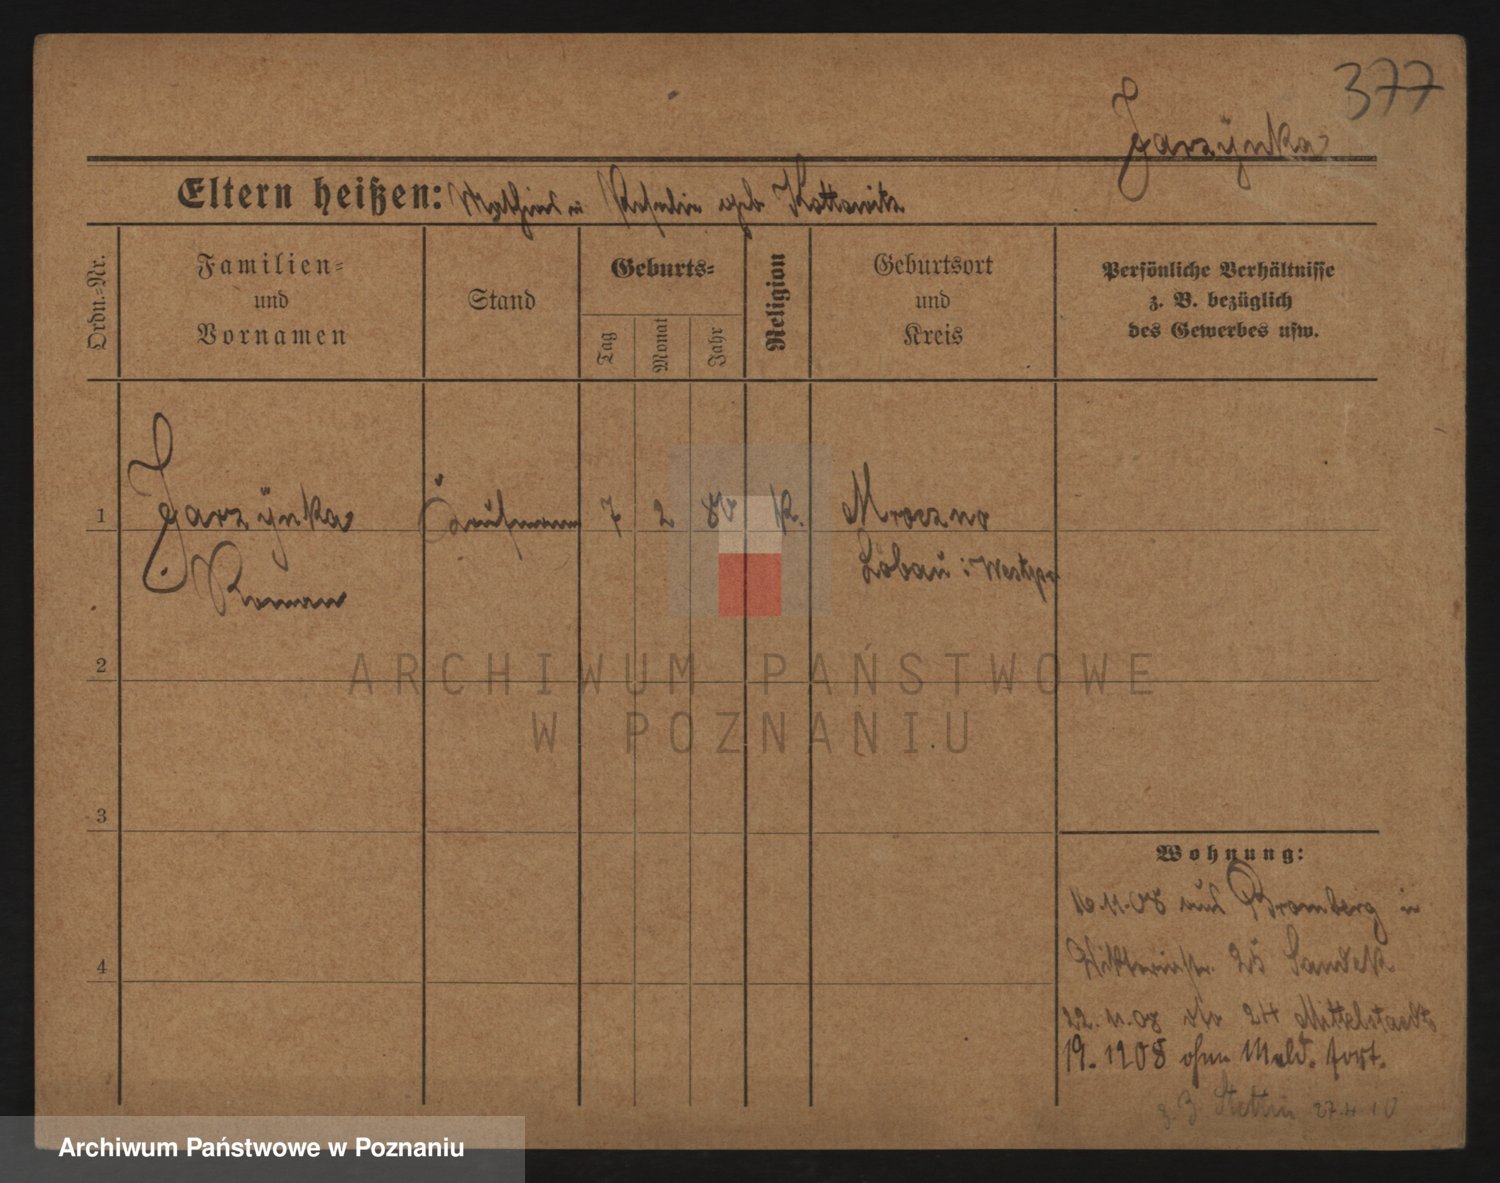 377
Jarzÿnka
Eltern heißen: Mathias u Rosalie geb Kottowitz
Ordn.=Nr.
Familien=
und
Vornamen
Stand
Geburts=
Tag
Monat
Jahr
Religion
Geburtsort
und
Kreis
Persönliche Verhältnisse
z. B. bezüglich
des Gewerbes usw.
1 Jarzÿnka Kaufmann 7 2 80 K. Mroczno
Roman Löbau i. Westpr
2
3
4
ARCHIWUM PAŃSTWOWE
W POZNANIU
Wohnung:
16.11.08 aus Bromberg in
Viktoriastr. 25 Sandek
22.11.08 24 Mittelstaedt
19. 1208 ohne Meld. fort.
z. Z. Stettin 27.4 10
Archiwum Państwowe w Poznaniu